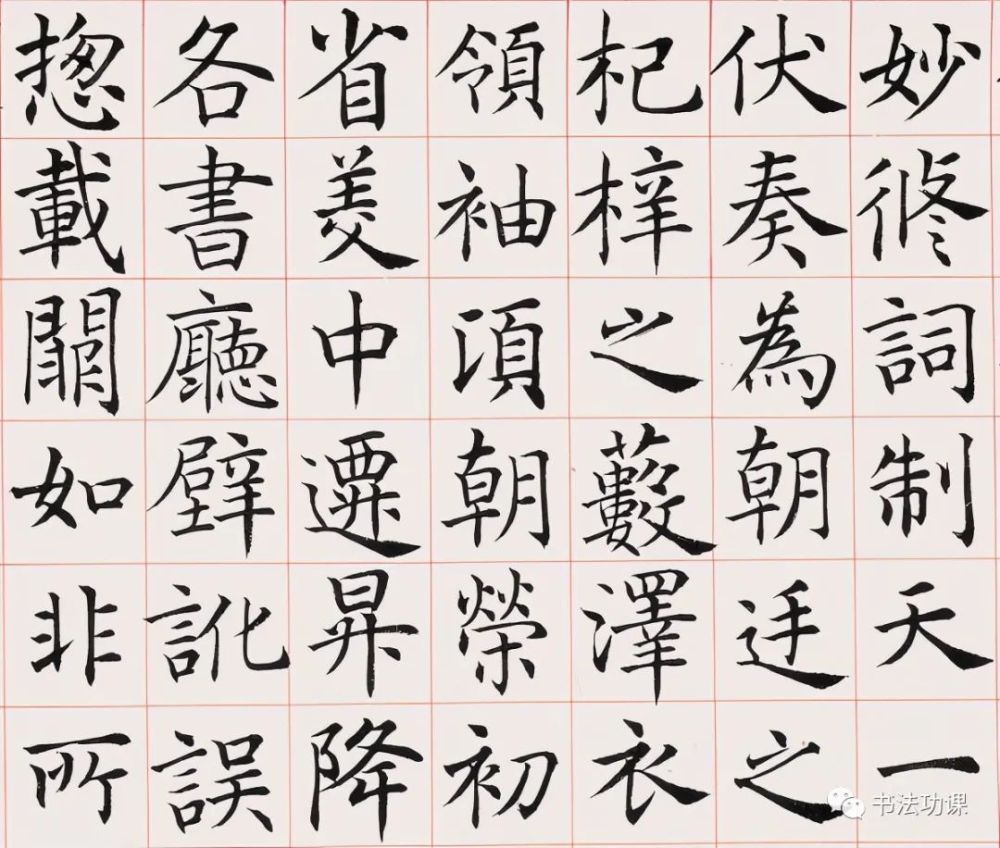 妙修詞制天一
伏奏為朝廷之
杞梓之藪澤衣
領袖湏朝榮初
省美中遷昇降
各書廳壁訛誤
揔載闕如非所
书法功课